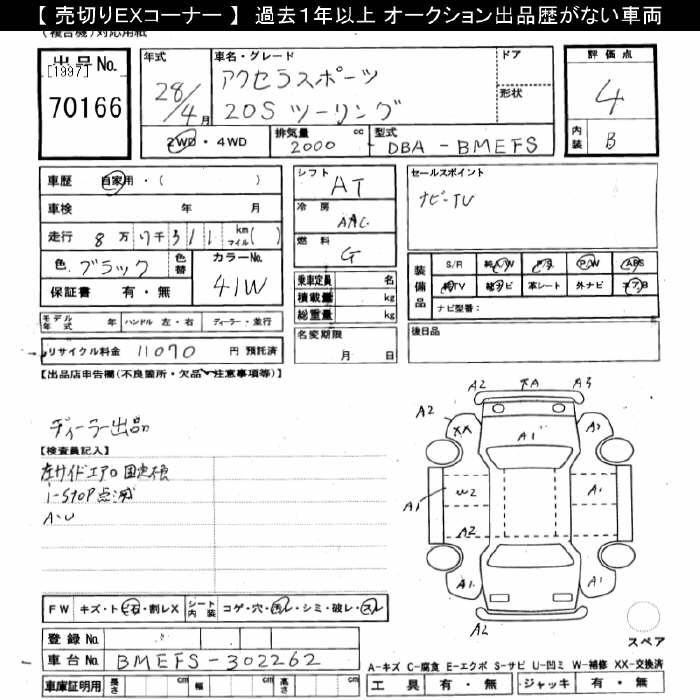 【 売切りEXコーナー 】 過去1年以上 オークション出品歴がない車両
(複合機)対応用紙
出品No.
[1997]
70166
年式
28/4月
車名・グレード
アクセラスポーツ
20S ツーリング
ドア
形状
評価点
4
内装
B
2WD・4WD
排気量
2000 cc
型式
DBA - BMEFS
車歴 自家用・( )
車検 年 月
走行 8万 7千 3 1 1 km マイル( )
色 ブラック 色替 カラーNo. 41W
保証書 有・無
シフト
AT
冷房
AAC
燃料
G
乗車定員 名
積載量 kg
総重量 kg
名変期限
月 日
セールスポイント
ナビ-TV
装備品
S/R 純A/W P/S P/W ABS
純TV 純ナビ 革シート 外ナビ エアB
ナビ型番:
後日品
モデル年式 年 ハンドル 左・右 ディーラー・並行
リサイクル料金 11070 円 預託済
【出品店申告欄(不良箇所・欠品・注意事項等)】
ディーラー出品
【検査員記入】
左サイドエアロ固定不良
i-STOP点滅
A・U
A2 XA A3
A2 XX A1 A2
A1 W2 A1
A2
A1 A1
A2
スペア
FW キズ・トビ石・割レX シート内装 コゲ・穴・汚レ・シミ・破レ・スレ
登録No.
車台No. BMEFS-302262
車庫証明用 長さ cm 幅 cm 高さ cm
A-キズ C-腐食 E-エクボ S-サビ U-凹ミ W-補修 XX-交換済
工具 有・無 ジャッキ 有・無